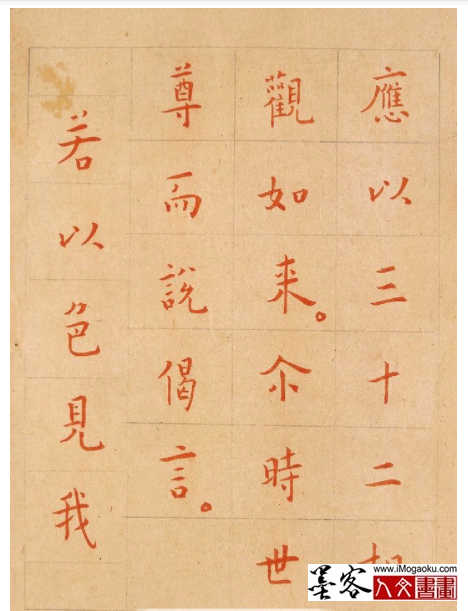 應以三十二相
觀如来。尒時世
尊而說偈言。
若以色見我
墨客
www.iMogaoku.com
人文書畫